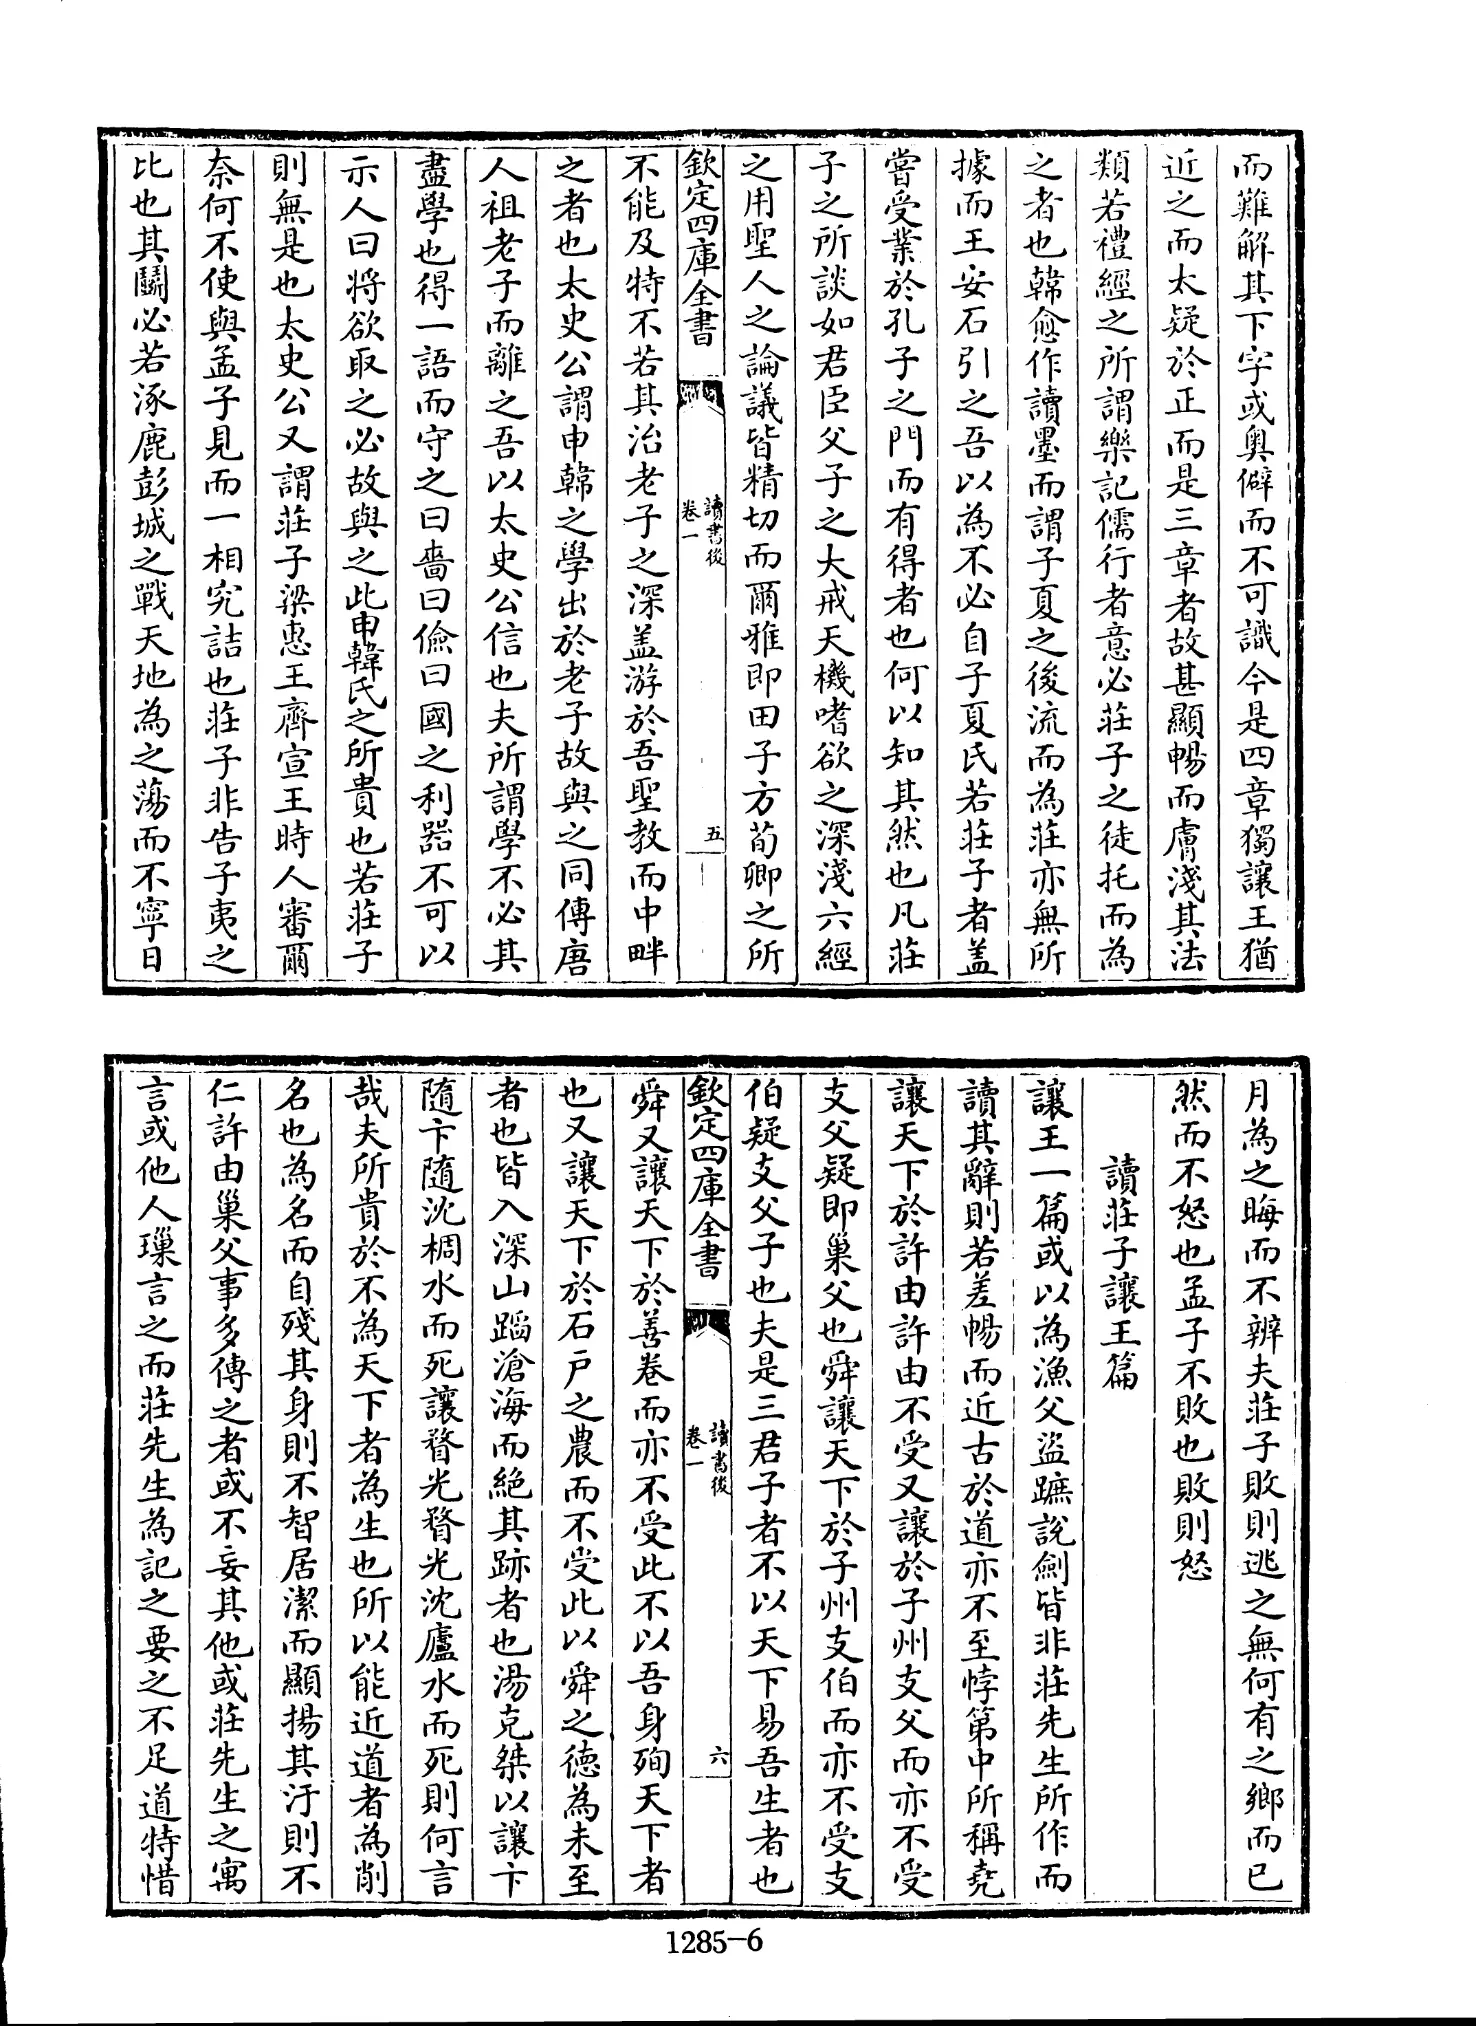 而難解其下字或奥僻而不可識今是四章獨讓王猶
近之而太疑於正而是三章者故甚顯暢而膚淺其法
類若禮經之所謂樂記儒行者意必莊子之徒托而為
之者也韓愈作讀墨而謂子夏之後流而為莊亦無所
據而王安石引之吾以為不必自子夏氏若莊子者盖
嘗受業於孔子之門而有得者也何以知其然也凡莊
子之所談如君臣父子之大戒天機嗜欲之深淺六經
之用聖人之論議皆精切而爾雅即田子方荀卿之所
欽定四庫全書
讀書後
卷一
五
不能及特不若其治老子之深盖游於吾聖教而中畔
之者也太史公謂申韓之學出於老子故與之同傳唐
人祖老子而離之吾以太史公信也夫所謂學不必其
盡學也得一語而守之曰嗇曰儉曰國之利器不可以
示人曰將欲取之必故與之此申韓氏之所貴也若莊子
則無是也太史公又謂莊子梁惠王齊宣王時人審爾
奈何不使與孟子見而一相究詰也莊子非告子夷之
比也其鬬必若涿鹿彭城之戰天地為之蕩而不寧日
月為之晦而不辨夫莊子敗則逃之無何有之鄉而已
然而不怒也孟子不敗也敗則怒
讀莊子讓王篇
讓王一篇或以為漁父盜蹠說劍皆非莊先生所作而
讀其辭則若差暢而近古於道亦不至悖第中所稱堯
讓天下於許由許由不受又讓於子州支父而亦不受
支父疑即巢父也舜讓天下於子州支伯而亦不受支
伯疑支父子也夫是三君子者不以天下易吾生者也
欽定四庫全書
讀書後
卷一
六
舜又讓天下於善卷而亦不受此不以吾身殉天下者
也又讓天下於石戶之農而不受此以舜之德為未至
者也皆入深山蹈滄海而絕其跡者也湯克桀以讓卞
隨卞隨沈椆水而死讓瞀光瞀光沈廬水而死則何言
哉夫所貴於不為天下者為生也所以能近道者為削
名也為名而自殘其身則不智居潔而顯揚其汙則不
仁許由巢父事多傳之者或不妄其他或莊先生之寓
言或他人璅言之而莊先生為記之要之不足道特惜
1285-6